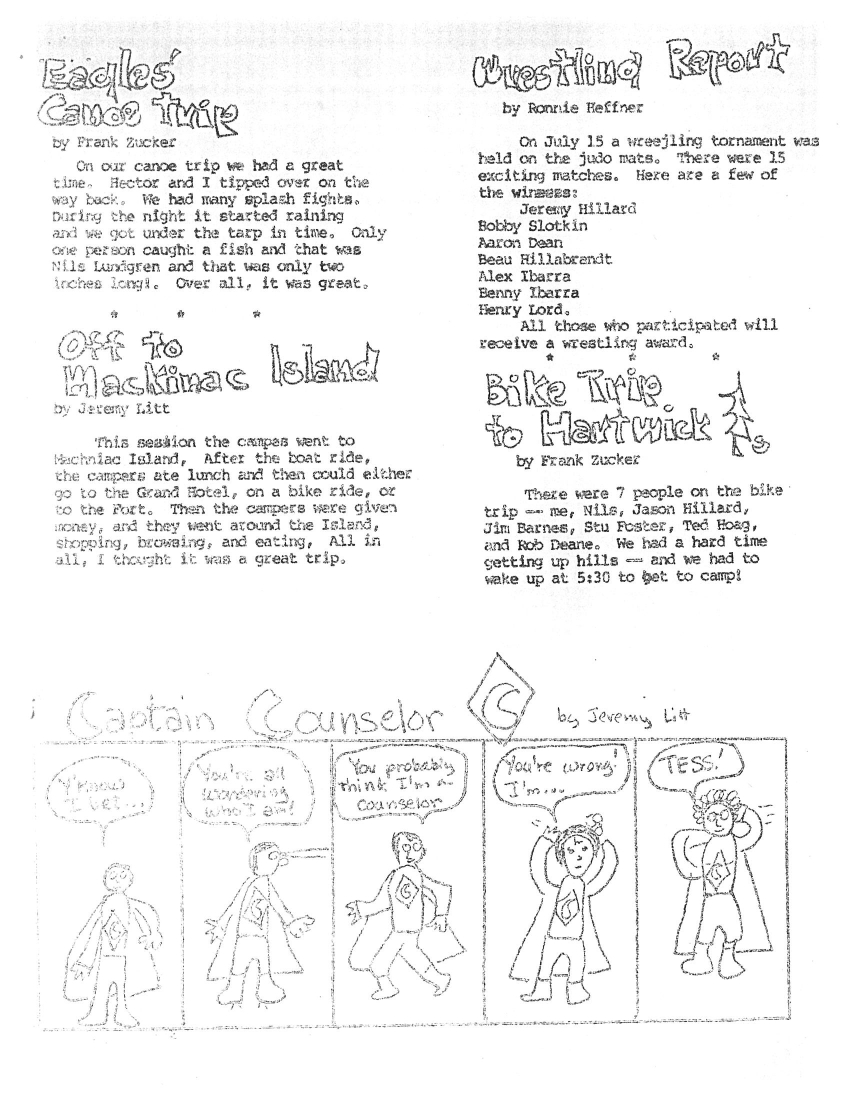 Eagles'
Canoe Trip
by Frank Zucker
On our canoe trip we had a great
time. Hector and I tipped over on the
way back. We had many splash fights.
During the night it started raining
and we got under the tarp in time. Only
one person caught a fish and that was
Nils Lundgren and that was only two
inches long!. Over all, it was great.
* * *
Off to
Mackinac Island
by Jeremy Litt
This session the campes went to
Machniac Island, After the boat ride,
the campers ate lunch and then could either
go to the Grand Hotel, on a bike ride, or
to the Fort. Then the campers were given
money, and they went around the Island,
shopping, browsing, and eating, All in
all, I thought it was a great trip.
Wrestling Report
by Ronnie Heffner
On July 15 a wreejling tornament was
held on the judo mats. There were 15
exciting matches. Here are a few of
the
Jeremy Hillard
Bobby Slotkin
Aaron Dean
Beau Hillabrandt
Alex Ibarra
Benny Ibarra
Henry Lord.
All those who participated will
receive a wrestling award.
* * *
Bike Trip
to Hartwick
by Frank Zucker
There were 7 people on the bike
trip -- me, Nils, Jason Hillard,
Jim Barnes, Stu Foster, Ted Hoag,
and Rob Deane. We had a hard time
getting up hills -- and we had to
wake up at 5:30 to get to camp!
Captain Counselor C by Jeremy Litt
Y'know
I bet...
You're all
wondering
who I am!
You probably
think I'm a
counselor
You're wrong!
I'm...
TESS!